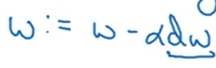 w := w - αdw